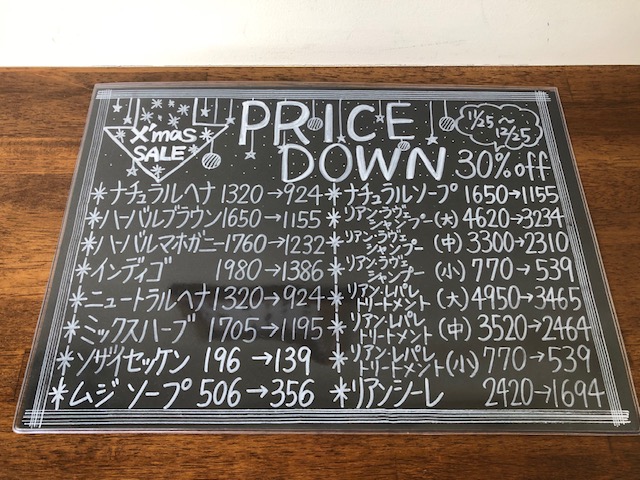 X'mas
SALE
PRICE
DOWN
11/25〜
12/25
30% off
*ナチュラルヘナ 1320→924
*ハーバルブラウン 1650→1155
*ハーバルマホガニー 1760→1232
*インディゴ 1980→1386
*ニュートラルヘナ 1320→924
*ミックスハーブ 1705→1195
*ソザイセッケン 196→139
*ムジソープ 506→356
*ナチュラルソープ 1650→1155
*リアン・ラヴェ
シャンプー(大) 4620→3234
*リアン・ラヴェ
シャンプー(中) 3300→2310
*リアン・ラヴェ
シャンプー(小) 770→539
*リアン・レパレ
トリートメント(大) 4950→3465
*リアン・レパレ
トリートメント(中) 3520→2464
*リアン・レパレ
トリートメント(小) 770→539
*リアンシーレ 2420→1694